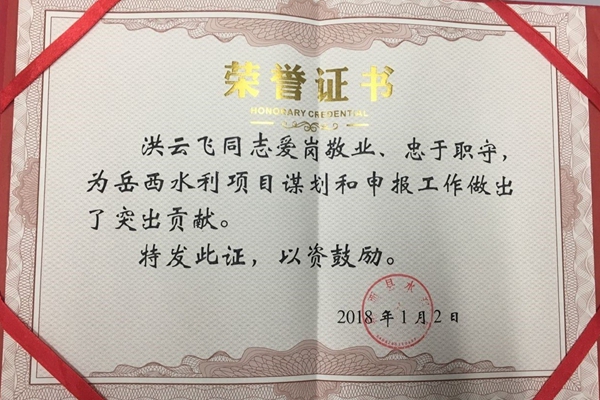 荣誉证书
HONORARY CREDENTIAL
洪云飞同志爱岗敬业、忠于职守，
为岳西水利项目谋划和申报工作做出
了突出贡献。
特发此证，以资鼓励。
西县水
2018 年 1 月 2 日